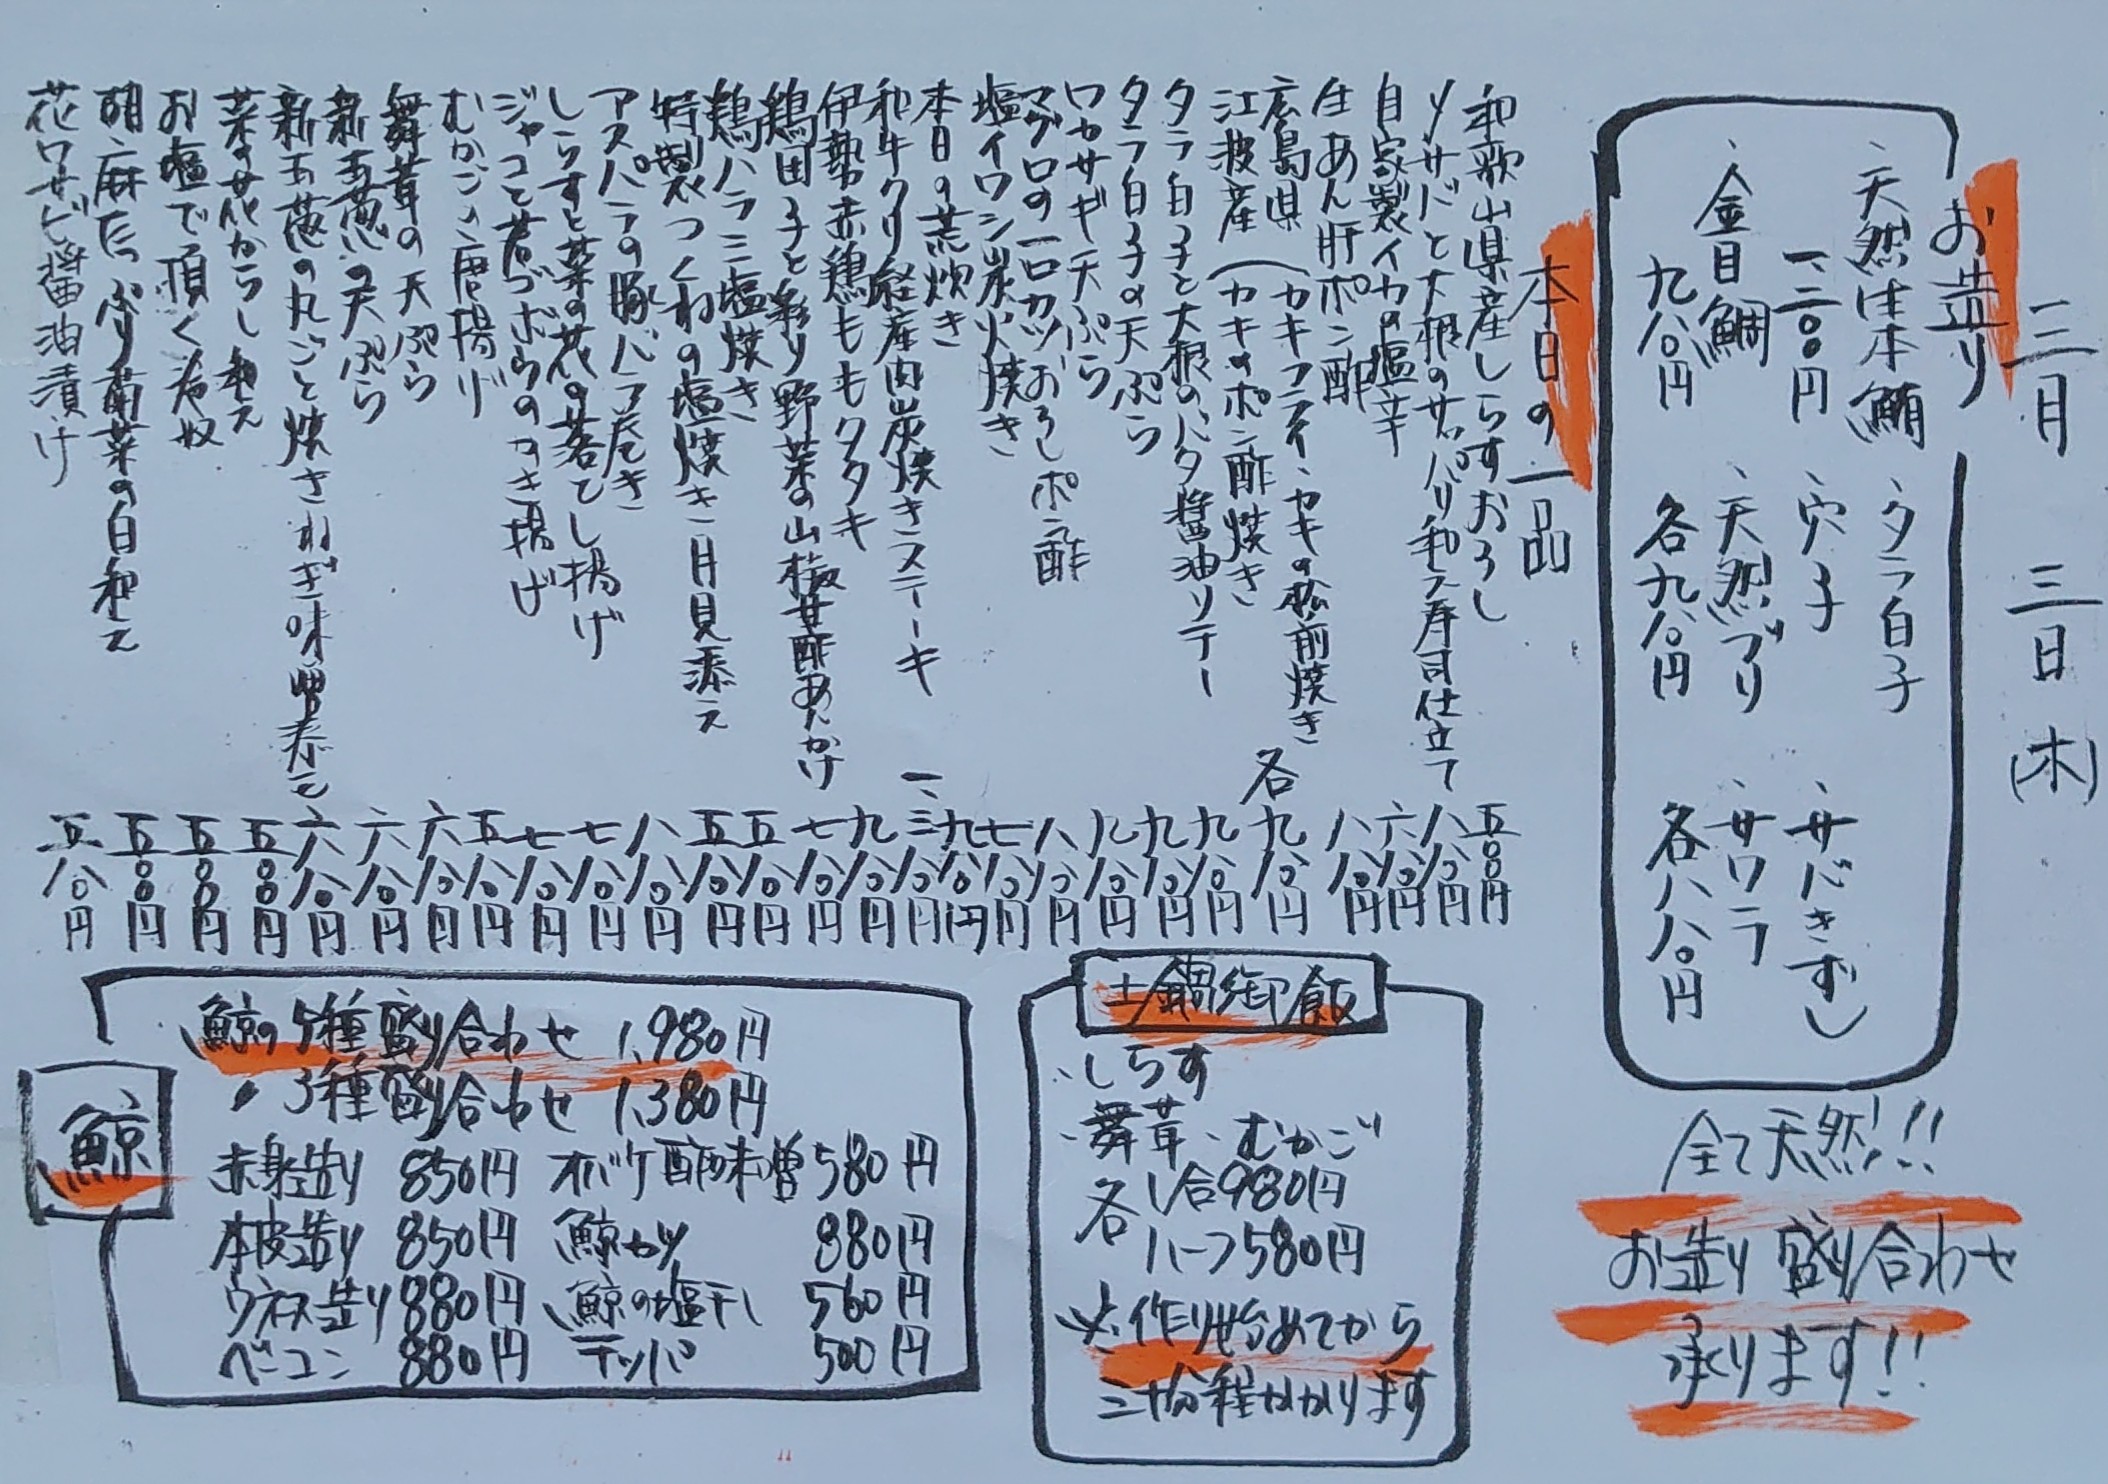 三月三日(木)
お造り
、天然生本鮪
一、三〇〇円
、金目鯛
九八〇円
、タラ白子
、穴子
、天然ブリ
各九八〇円
、サバきずし
、サワラ
各八八〇円
全て天然!!
お造り盛り合わせ
承ります!!
本日の一品
和歌山県産しらすおろし 五〇〇円
〆サバと大根のサッパリ和え寿司仕立て 八八〇円
自家製イカの塩辛 六八〇円
生あん肝ポン酢 八八〇円
広島県江波産(カキフライ・カキの松前焼き
カキのポン酢焼き 各九八〇円
タラ白子と大根のバタ醤油ソテー 九八〇円
タラ白子の天ぷら 九八〇円
ワカサギ天ぷら
マグロの一口カツおろしポン酢
塩イワシ炭火焼き
本日の荒炊き
和牛クリ経産肉炭焼きステーキ 一、三八〇円
伊勢赤鶏ももタタキ 九八〇円
鶏団子と彩り野菜の山椒甘酢あんかけ 七八〇円
鶏ハラミ塩焼き 五八〇円
特製つくねの塩焼き 月見添え 五八〇円
アスパラの豚バラ巻き 八八〇円
しらすと菜の花の落とし揚げ 七八〇円
ジャコと若ゴボウのかき揚げ 七八〇円
むかごの唐揚げ 五八〇円
舞茸の天ぷら 六八〇円
新玉葱の天ぷら 六八〇円
新玉葱の丸ごと焼きねぎ味噌添え 六八〇円
菜の花からし和え 五〇〇円
お塩で頂く冷奴 五〇〇円
胡麻たっぷり菊菜の白和え 五〇〇円
花ワサビ醤油漬け 五八〇円
土鍋御飯
・しらす
・舞茸・むかご
各 1合980円
ハーフ580円
※作り始めてから
三十分程かかります
鯨
鯨の5種盛り合わせ 1,980円
〃 3種盛り合わせ 1,380円
赤身造り 850円 オバケ酢味噌 580円
本皮造り 850円 鯨カツ 880円
ウネス造り 880円 鯨の塩干し 560円
ベーコン 880円 テッパ 500円